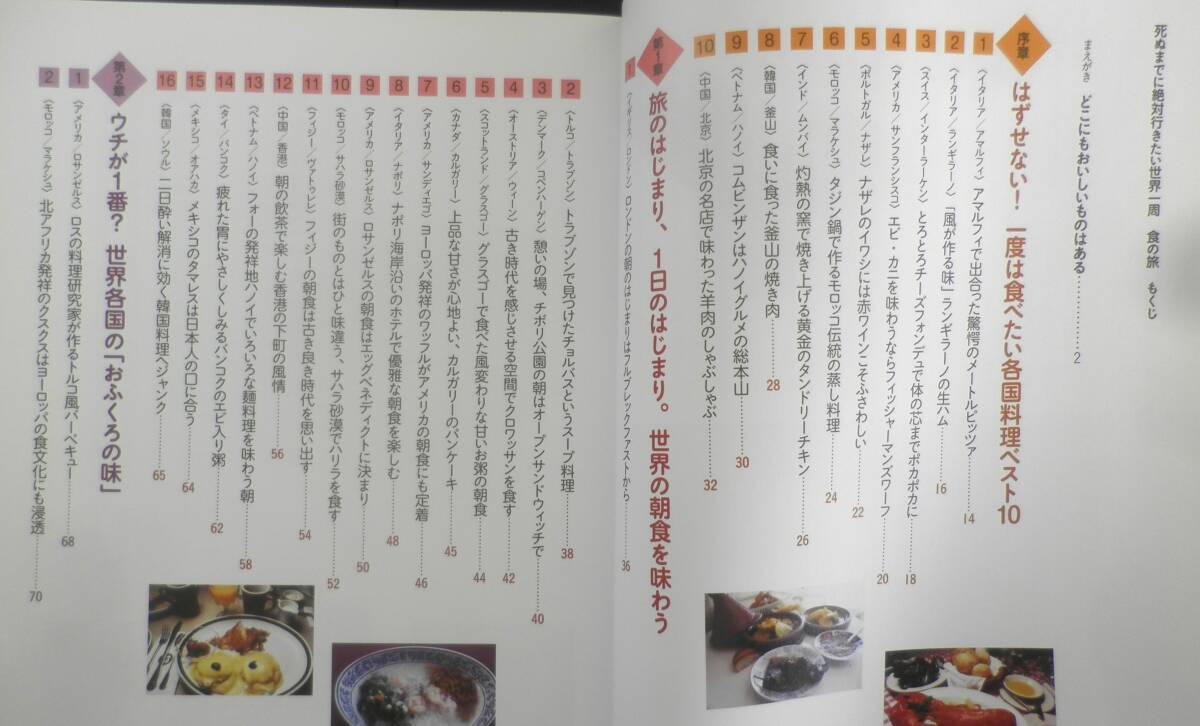 死ぬまでに絶対行きたい世界一周 食の旅 もくじ
まえがき どこにもおいしいものはある…………2
序章 はずせない！ 一度は食べたい各国料理ベスト10
1 〈イタリア／アマルフィ〉 アマルフィで出合った驚愕のメートルピッツァ…………14
2 〈イタリア／ランギラーノ〉 「風が作る味」ランギラーノの生ハム…………16
3 〈スイス／インターラーケン〉 とろとろチーズフォンデュで体の芯までポカポカに…………18
4 〈アメリカ／サンフランシスコ〉 エビ・カニを味わうならフィッシャーマンズワーフ…………20
5 〈ポルトガル／ナザレ〉 ナザレのイワシには赤ワインこそふさわしい…………22
6 〈モロッコ／マラケシュ〉 タジン鍋で作るモロッコ伝統の蒸し料理…………24
7 〈インド／ムンバイ〉 灼熱の窯で焼き上げる黄金のタンドリーチキン…………26
8 〈韓国／釜山〉 食いに食った釜山の焼き肉…………28
9 〈ベトナム／ハノイ〉 コムビンザンはハノイグルメの総本山…………30
10 〈中国／北京〉 北京の名店で味わった羊肉のしゃぶしゃぶ…………32
第1章 旅のはじまり、1日のはじまり。世界の朝食を味わう
1 〈イギリス／ロンドン〉 ロンドンの朝のはじまりはフルブレックファストから…………36
2 〈トルコ／トラブゾン〉 トラブゾンで見つけたチョルバスというスープ料理…………38
3 〈デンマーク／コペンハーゲン〉 憩いの場、チボリ公園の朝はオープンサンドウィッチで…………40
4 〈オーストリア／ウィーン〉 古き時代を感じさせる空間でクロワッサンを食す…………42
5 〈スコットランド／グラスゴー〉 グラスゴーで食べた風変わりな甘いお粥の朝食…………44
6 〈カナダ／カルガリー〉 上品な甘さが心地よい、カルガリーのパンケーキ…………45
7 〈アメリカ／サンディエゴ〉 ヨーロッパ発祥のワッフルがアメリカの朝食にも定着…………46
8 〈イタリア／ナポリ〉 ナポリ海岸沿いのホテルで優雅な朝食を楽しむ…………48
9 〈アメリカ／ロサンゼルス〉 ロサンゼルスの朝食はエッグベネディクトに決まり…………50
10 〈モロッコ／サハラ砂漠〉 街のものとはひと味違う、サハラ砂漠でハリラを食す…………52
11 〈フィジー／ヴァトゥレビ〉 フィジーの朝食は古き良き時代を思い出す…………54
12 〈中国／香港〉 朝の飲茶で楽しむ香港の下町の風情…………56
13 〈ベトナム／ハノイ〉 フォーの発祥地ハノイでいろいろな麺料理を味わう朝…………58
14 〈タイ／バンコク〉 疲れた胃にやさしくしみるバンコクのエビ入り粥…………62
15 〈メキシコ／オアハカ〉 メキシコのタマレスは日本人の口に合う…………64
16 〈韓国／ソウル〉 二日酔い解消に効く韓国料理ヘジャンク…………65
第2章 ウチが1番？ 世界各国の「おふくろの味」
1 〈アメリカ／ロサンゼルス〉 ロスの料理研究家が作るトルコ風バーベキュー…………68
2 〈モロッコ／マラケシュ〉 北アフリカ発祥のクスクスはヨーロッパの食文化にも浸透…………70